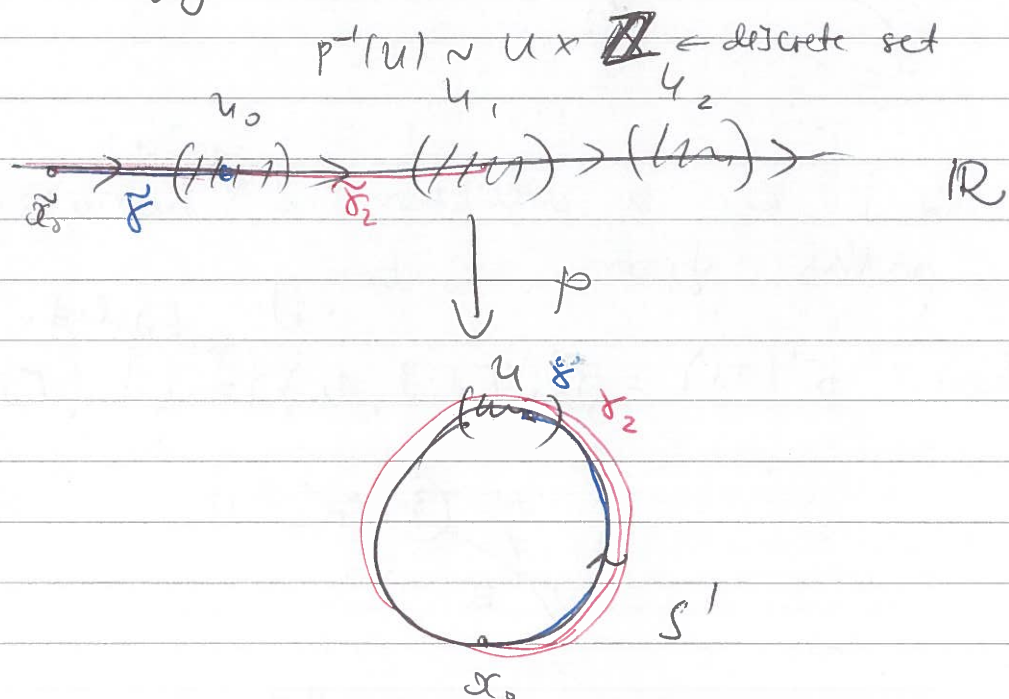 p⁻¹(U) ~ U × ℤ ← discrete set
U₀ U₁ U₂
x̃₀ γ̃ γ̃₂ ℝ
p
U γ γ₂
S¹
x₀